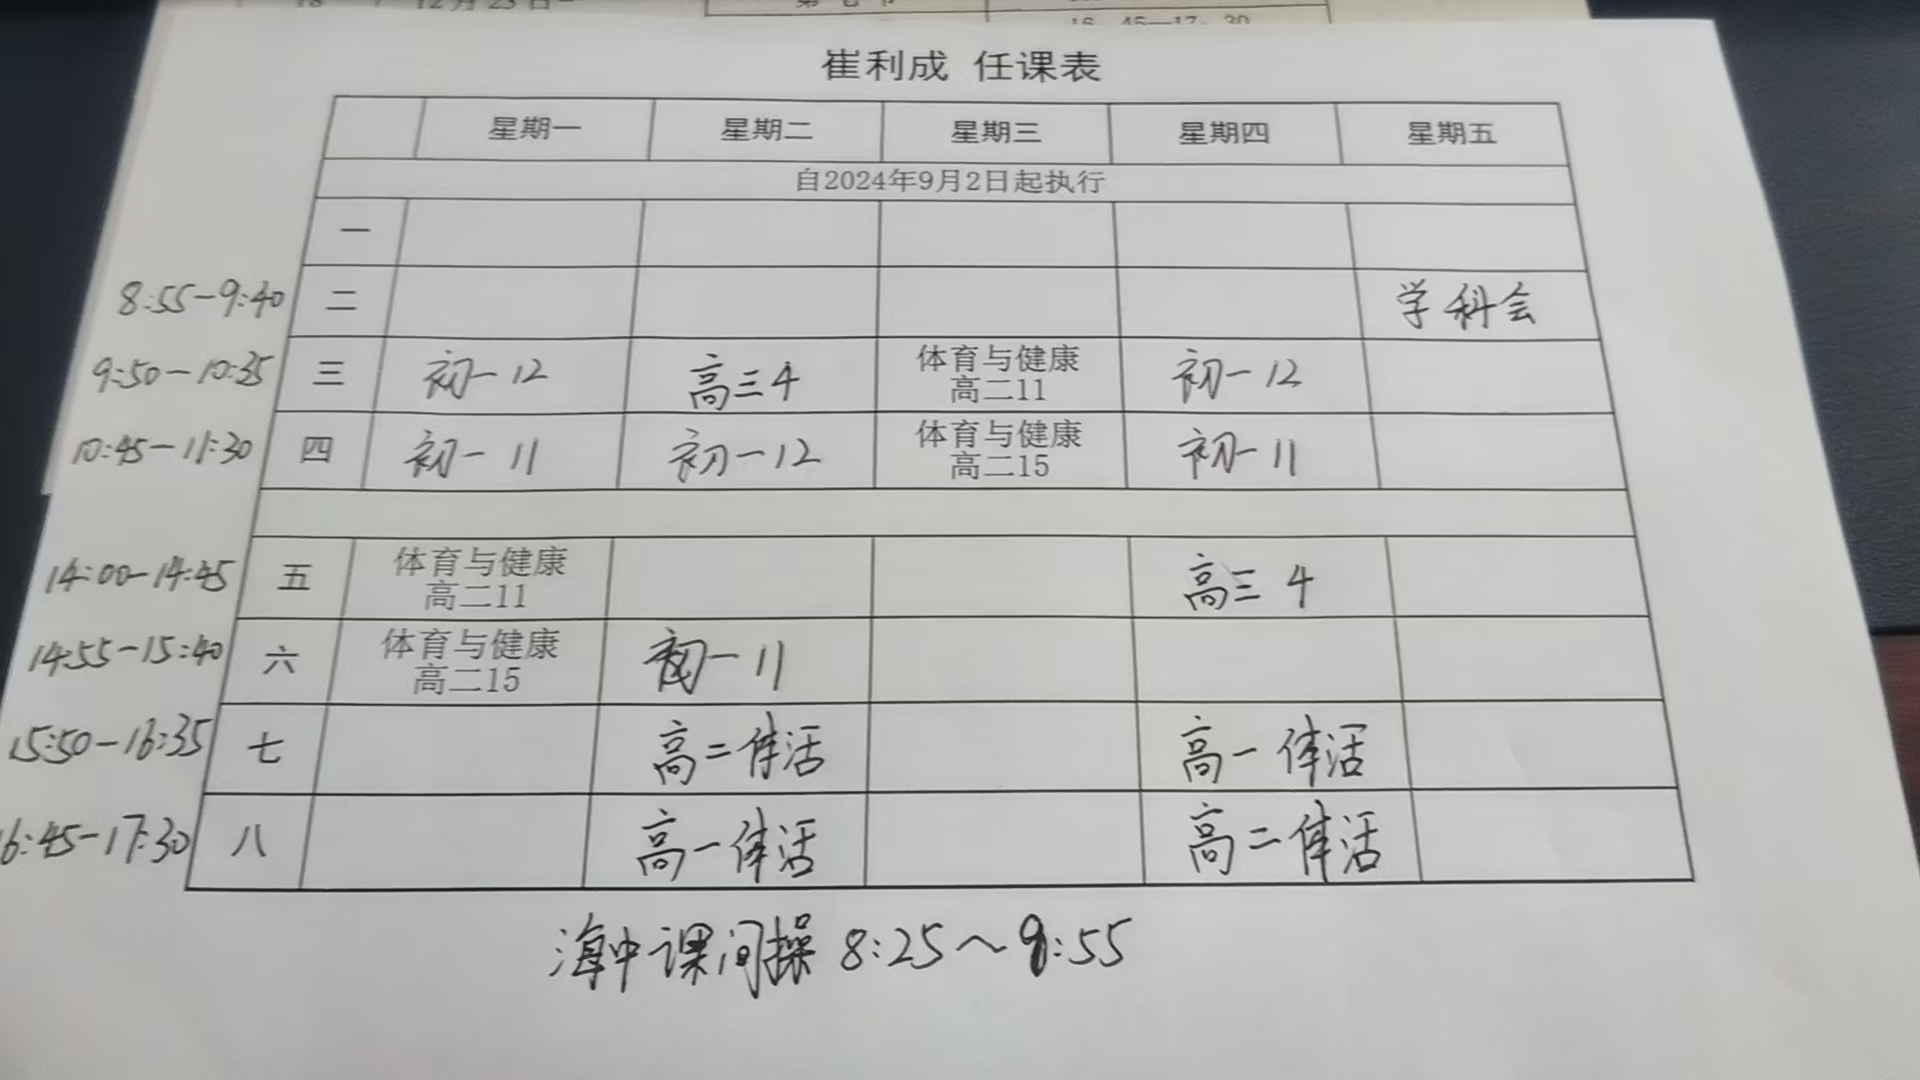 12月23日
第七节
16:45—17:30
崔利成 任课表
星期一 星期二 星期三 星期四 星期五
自2024年9月2日起执行
一
8:55-9:40 二 学科会
9:50-10:35 三 初一12 高三4 体育与健康 高二11 初一12
10:45-11:30 四 初一11 初一12 体育与健康 高二15 初一11
14:00-14:45 五 体育与健康 高二11 高三 4
14:55-15:40 六 体育与健康 高二15 初一11
15:50-16:35 七 高二体活 高一体活
16:45-17:30 八 高一体活 高二体活
海中课间操 8:25~8:55